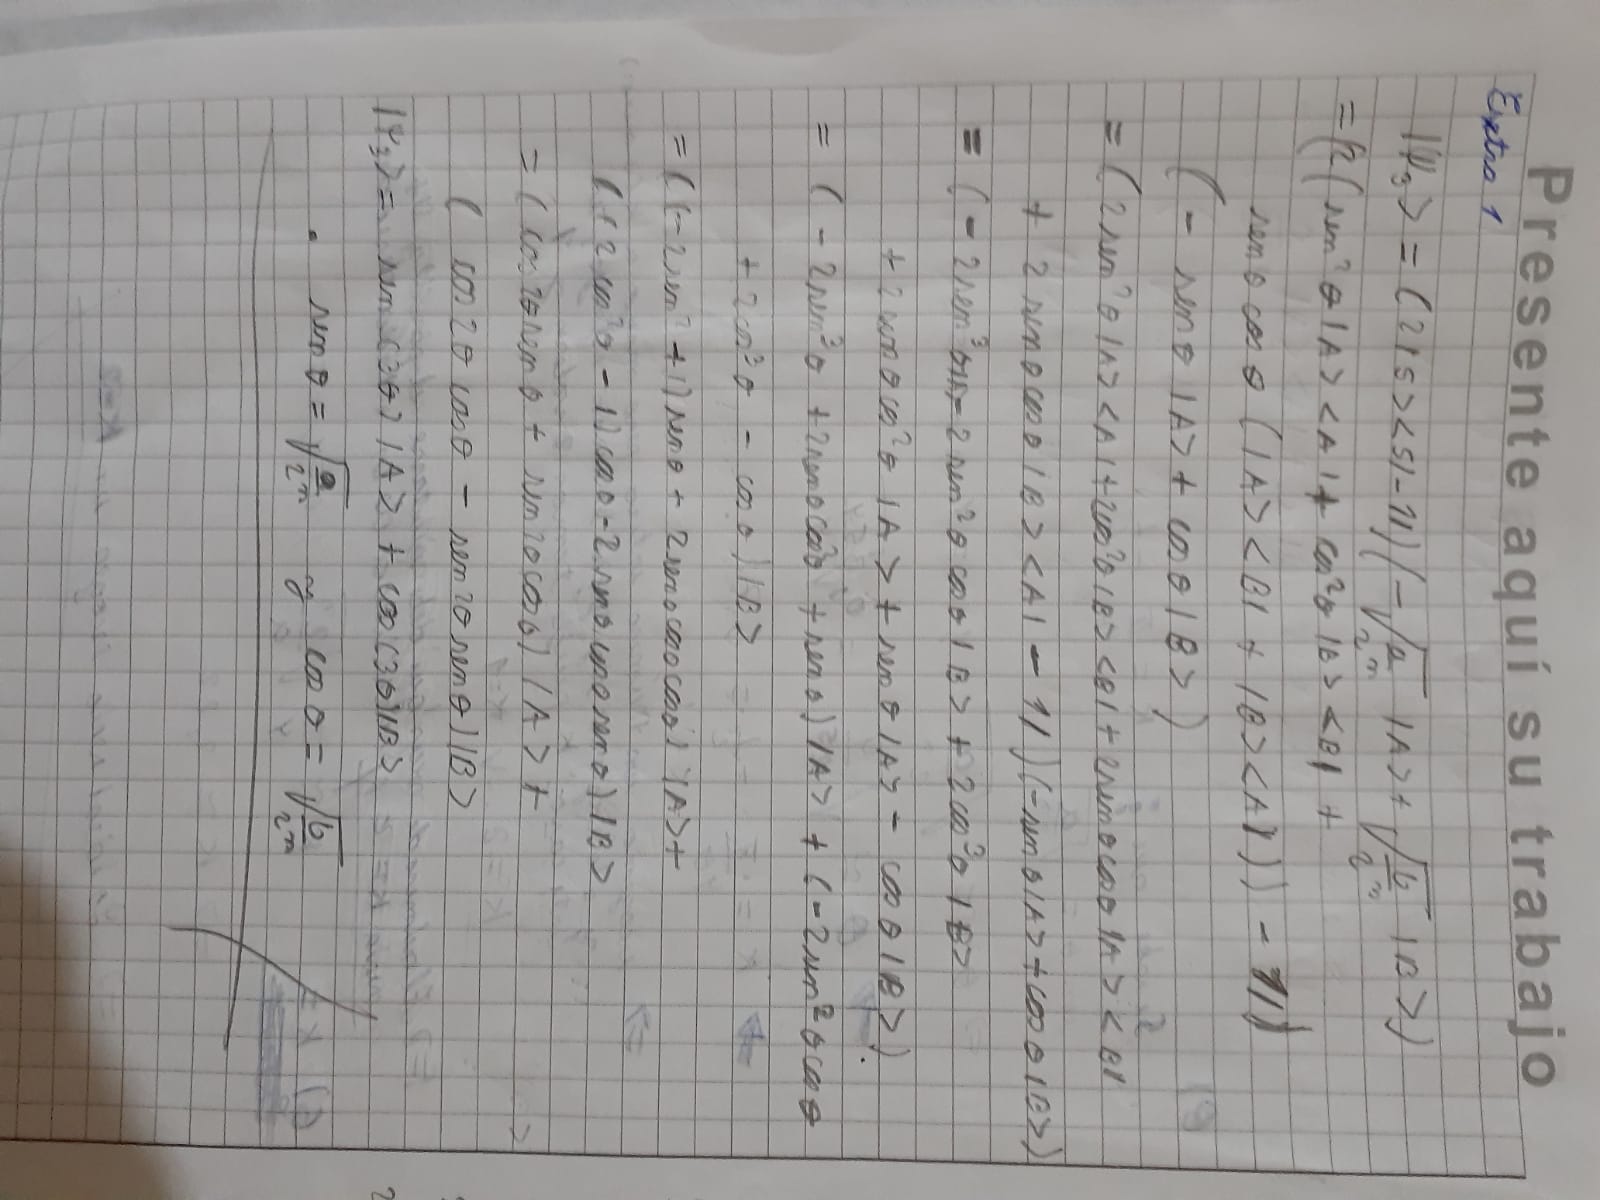 Presente aquí su trabajo
Extra 1
|Ψ₃> = (2|S><S| - 1I)(-√a/2ⁿ |A> + √b/2ⁿ |B>)
= (2(sen²θ|A><A| + cos²θ|B><B| +
senθ cosθ (|A><B| + |B><A|)) - 1I)
(- senθ |A> + cosθ |B>)
= (2sen²θ|A><A| + 2cos²θ|B><B| + 2senθcosθ|A><B|
+ 2senθcosθ|B><A| - 1I)(-senθ|A> + cosθ|B>)
= (-2sen³θ|A> - 2sen²θcosθ|B> + 2cos³θ|B>
+ 2senθcos²θ|A> + senθ|A> - cosθ|B>).
= (-2sen³θ + 2senθcos²θ + senθ)|A> + (-2sen²θcosθ
+ 2cos³θ - cosθ)|B>
= ((-2sen² + 1)senθ + 2senθcosθcosθ)|A> +
((2cos²θ - 1)cosθ - 2senθcosθsenθ)|B>
= (cos2θsenθ + sen2θcosθ)|A> +
(cos2θcosθ - sen2θsenθ)|B>
|Ψ₃> = sen(3θ)|A> + cos(3θ)|B>
• senθ = √a/2ⁿ y cosθ = √b/2ⁿ